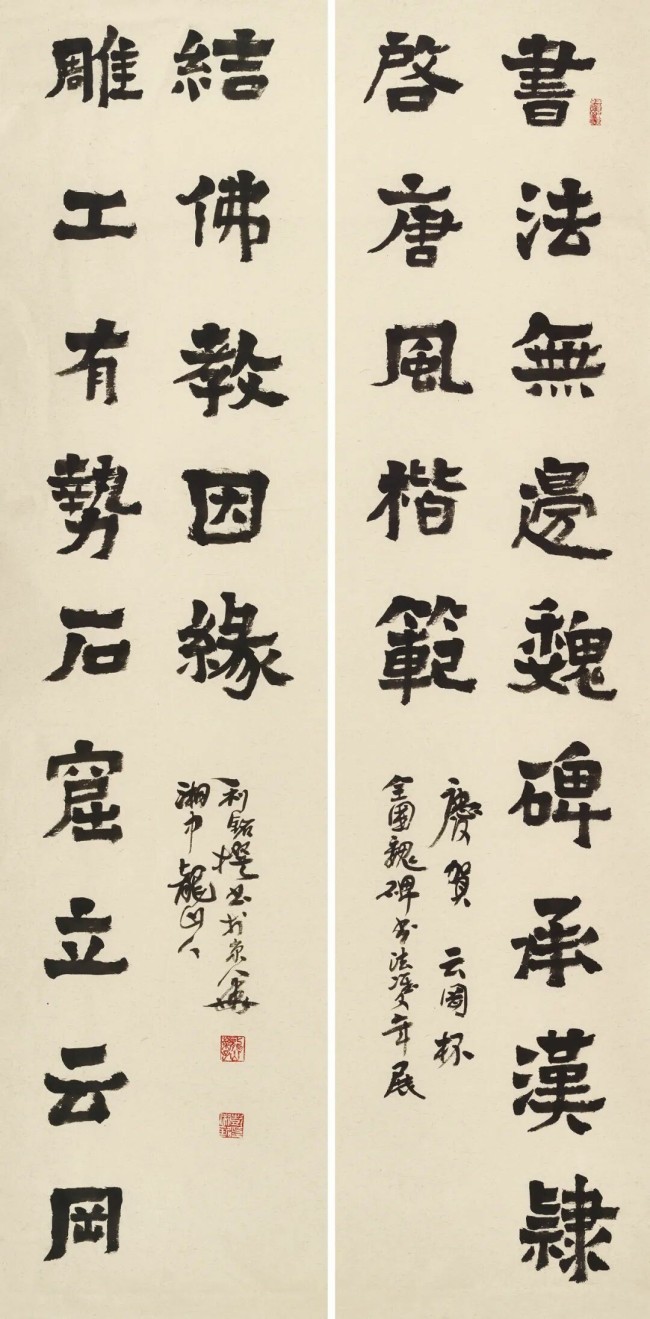 書法無邊魏碑承漢隸
啓唐風楷範
慶賀 云岡杯
全國魏碑书法雙年展
雕工有勢石窟立云岡
結佛教因緣
利撰书於京華
湘中龍山人